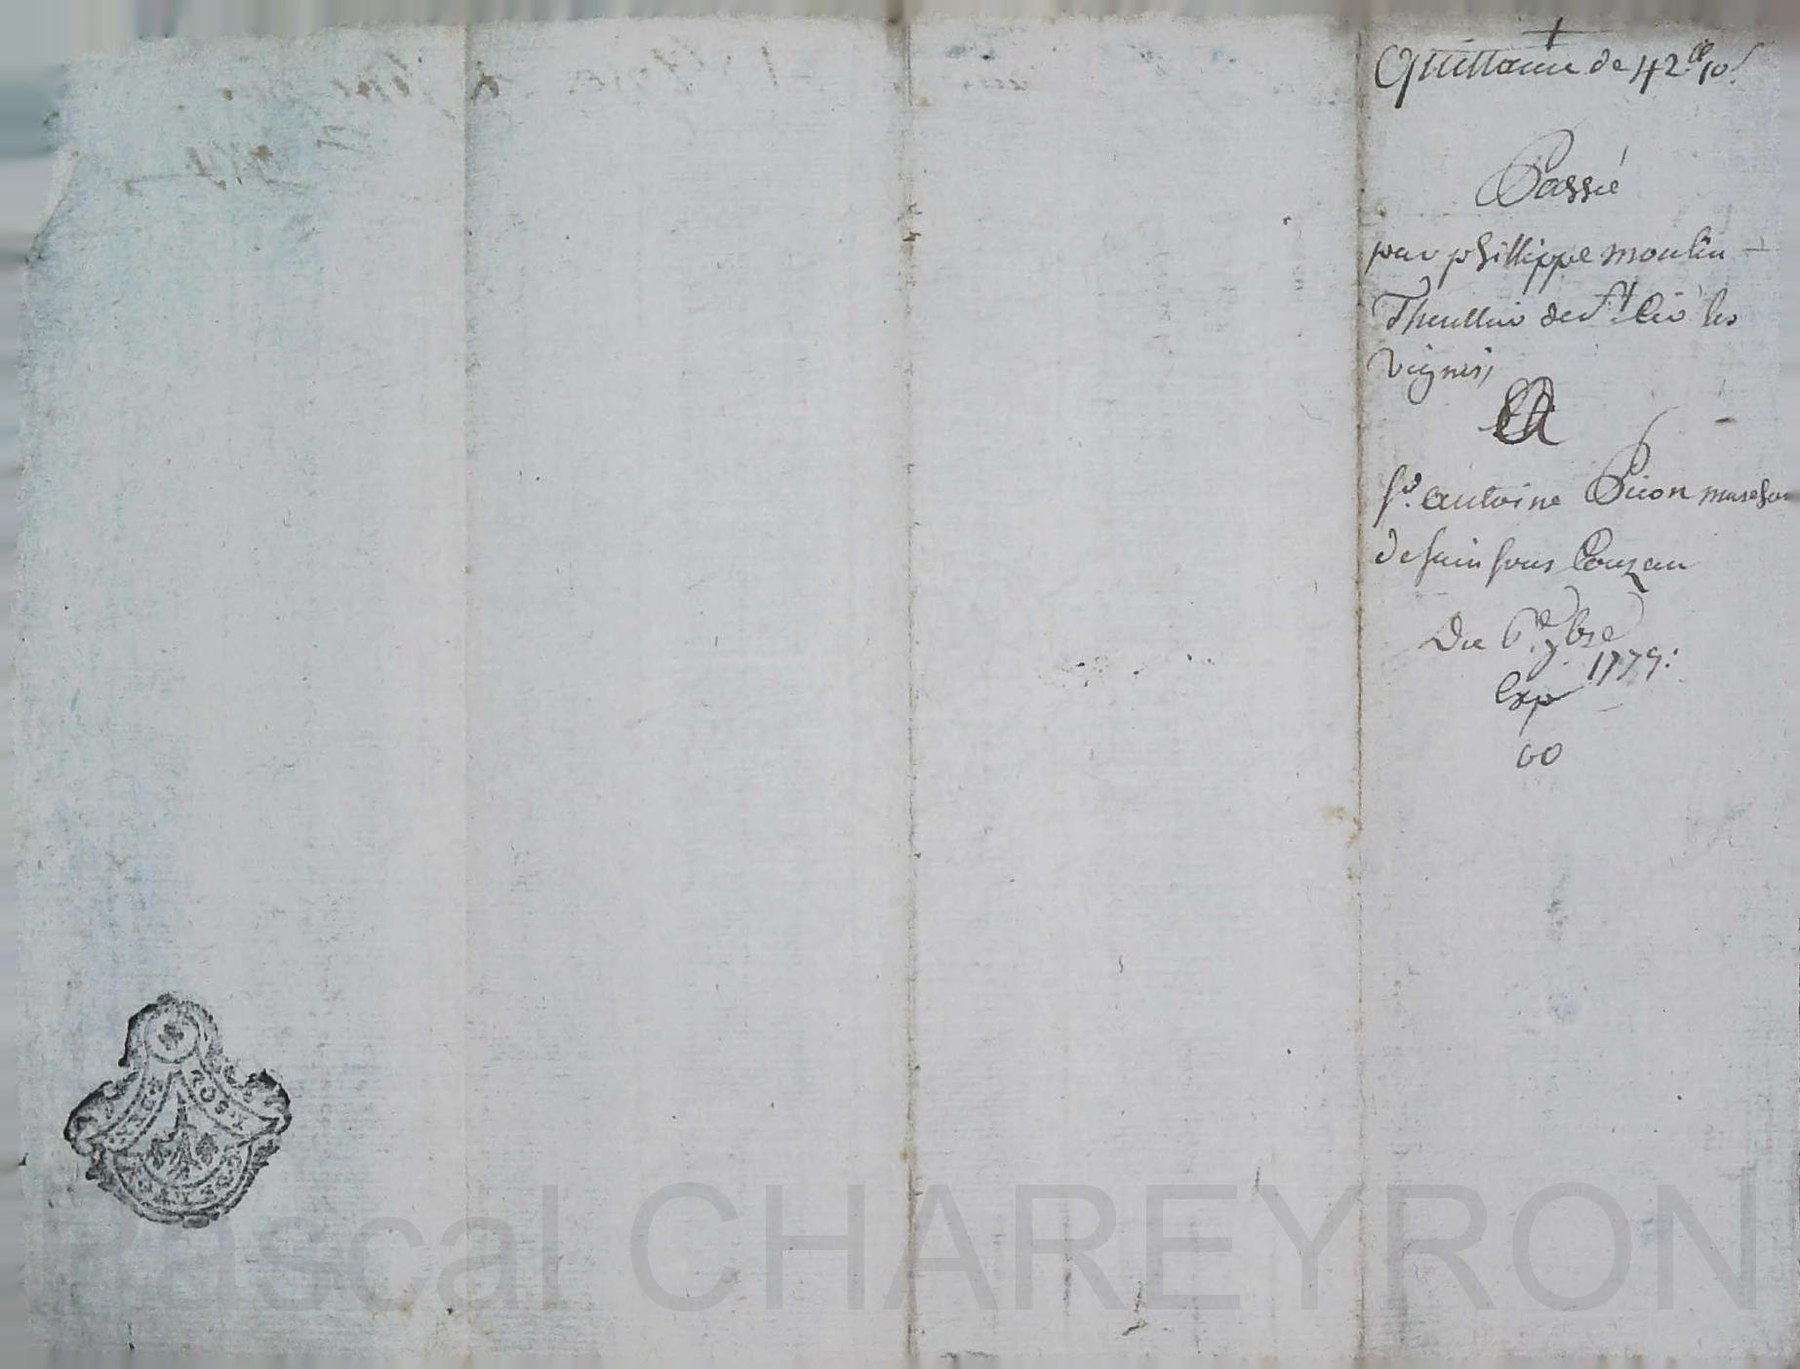 Quittance de 42ᴸᴸ 10ˢ
Passé
par phillippe moulin
Thuillier de Sᵗ Cir les
vignes,
A
Sʳ. antoine Picon marchan
de sain sous Couzan
Du 6ᵉ 7bre
1779:
Exp
60
Pascal CHAREYRON